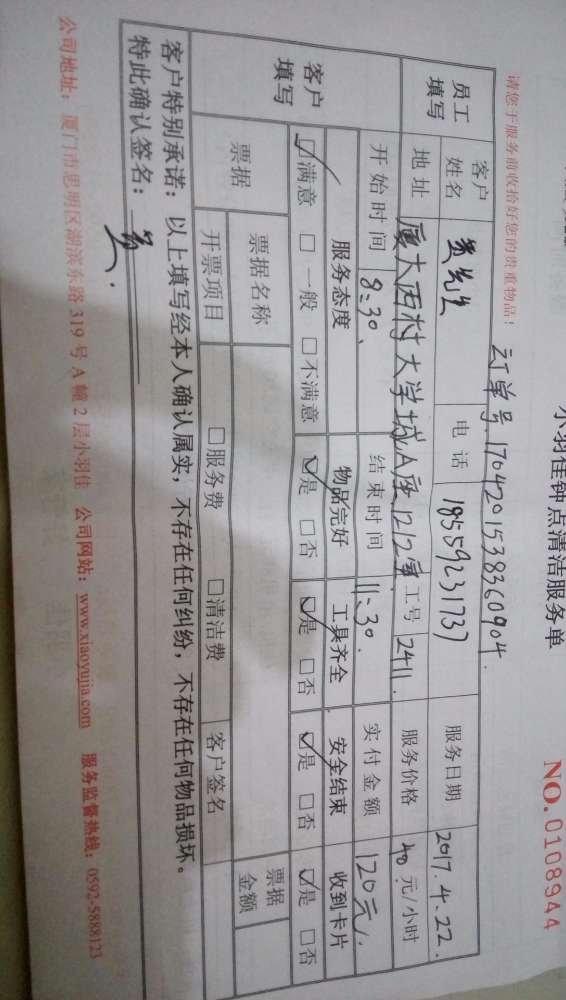 小羽佳钟点清洁服务单
NO. 0108944
请您于服务前收拾好您的贵重物品！
订单号:17042015383609​04.
员工填写
客户姓名 先生 电话 18559231737 服务日期 2017.4.22.
地址 厦大西村大学城A座1212室 工号 2411. 服务价格 40 元/小时
开始时间 8:30. 结束时间 11:30. 实付金额 120元/.
客户填写
服务态度 物品完好 工具齐全 安全结束 收到卡片
☑满意 □一般 □不满意 ☑是 □否 ☑是 □否 ☑是 □否 ☑是 □否
票据 票据名称 票据金额
开票项目 □服务费 □清洁费 客户签名
客户特别承诺：以上填写经本人确认属实，不存在任何纠纷，不存在任何物品损坏。
特此确认签名：
公司地址：厦门市思明区湖滨东路319号A幢2层小羽佳 公司网站：www.xiaoyujia.com 服务监督热线：0592-5888123